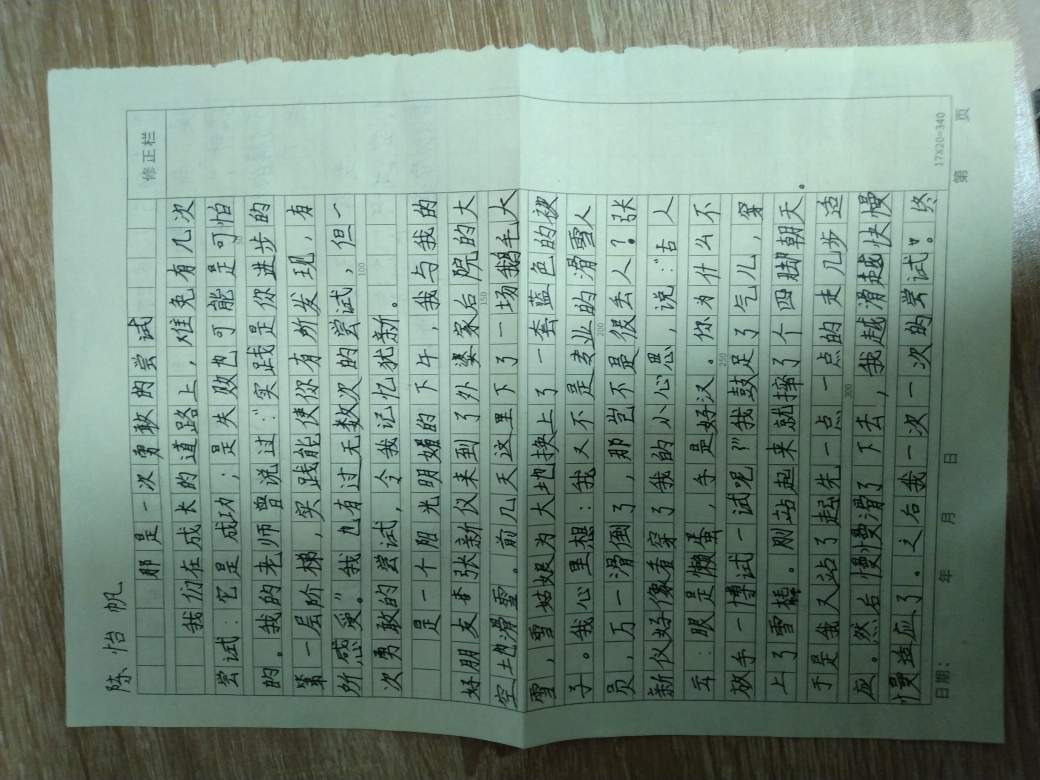 陈怡帆
那是一次勇敢的尝试
修正栏
我们在成长的道路上，难免有几次
尝试：它是成功；是失败也可能是可怕
的。我的老师曾说过：“实践是你进步的
第一层阶梯，实践能使你有所发现，有
所感受。”我也有过无数次的尝试，但一
次勇敢的尝试，令我记忆犹新。
100
是一个阳光明媚的下午，我与我的
好朋友张新仪来到了外婆家后院的大
空地滑雪。前几天这里下了一场鹅毛大
雪，雪姑娘为大地换上了一套蓝色的被
子。我心里想：我又不是专业的滑雪人
200
员，万一滑倒了，那岂不是很丢人？张
新仪好像看穿了我的小心思，说：“古人
云：眼是懒蛋，手是好汉。你为什么不
放手一博试一试呢？”我鼓足了气儿，穿
250
上了雪橇。刚站起来就摔了个四脚朝天。
于是我又站了起先一点一点的走几步适
300
应。然后慢慢滑了下去，我越滑越快慢
慢适应了。之后我一次一次的尝试。终
17X20=340
日期： 年 月 日 第 页